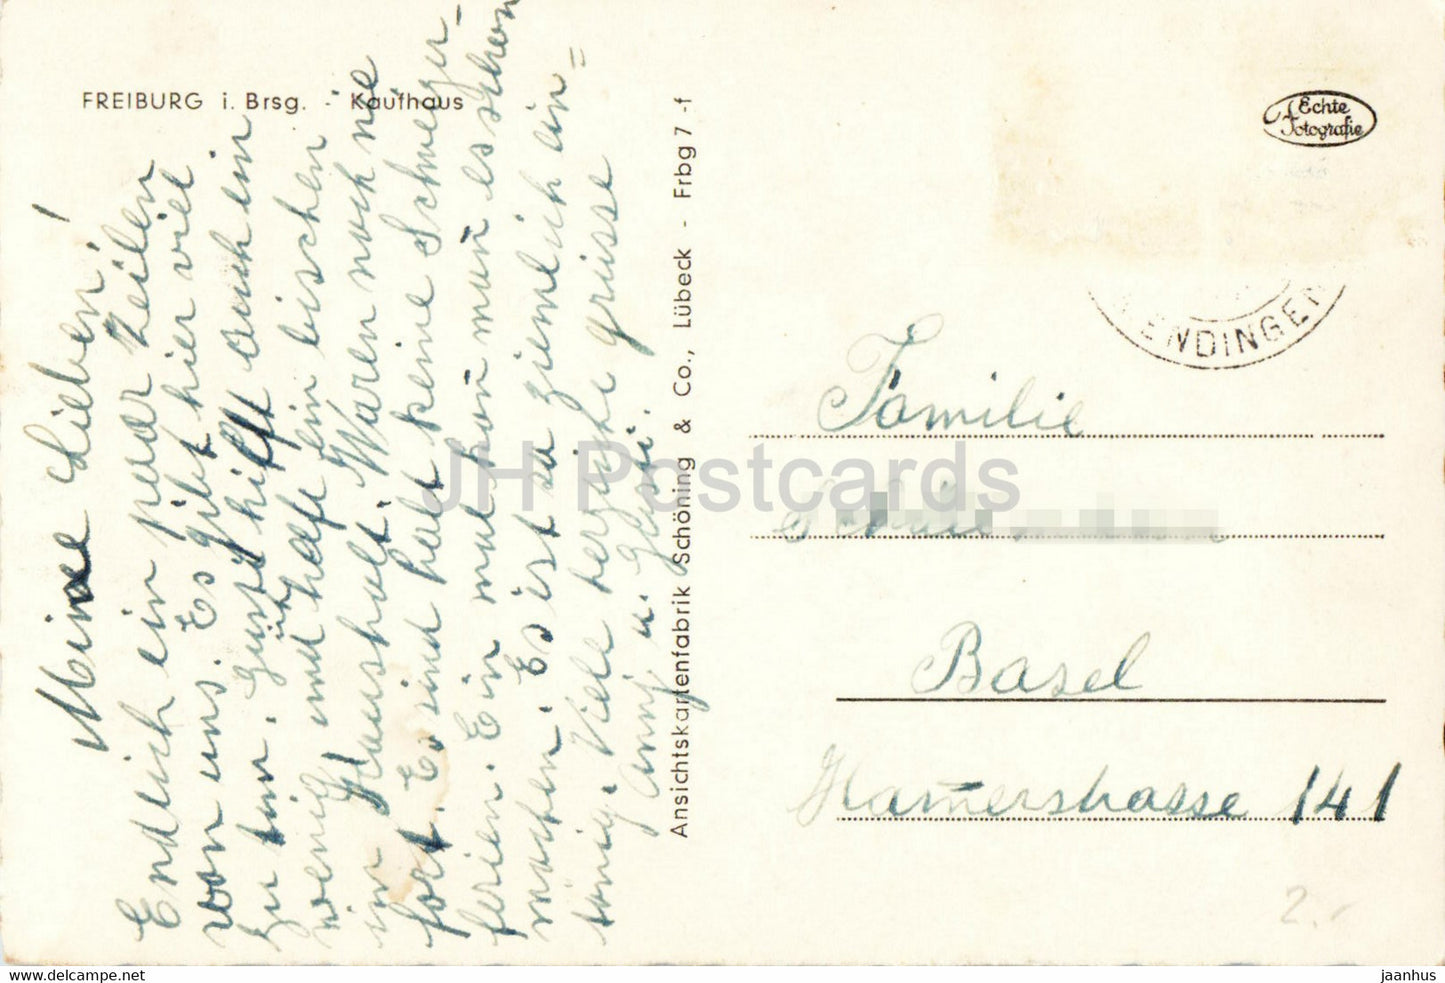 FREIBURG i. Brsg. - Kaufhaus
Echte Fotografie
ENDINGEN
Meine Lieben!
Endlich ein paar Zeilen
von uns. Es gibt hier viel
zu tun. Gusti hilft auch ein
wenig und ich helfe ein bischen
im Haushalt. Waren noch nie
fort. Es sind halt keine Schweizer-
ferien. Ein mal kann man es schon
machen. Es ist so ziemlich ein=
tönig. Viele herzliche grüsse
Anny u. Gusti.
Ansichtskartenfabrik Schöning & Co., Lübeck - Frbg 7 -f
Familie
Basel
Hamerstrasse 141
2.-
JH Postcards
www.delcampe.net
jaanhus